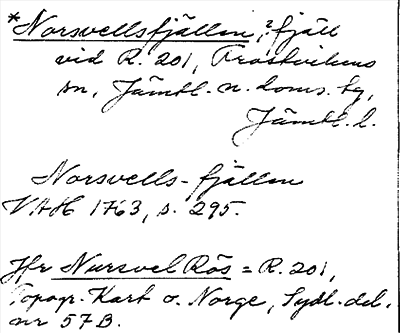 *Norsvellsfjällen, ? fjäll
vid R. 201, Frostvikens
sn, Jämtl. n. doms. tg,
Jämtl. l.
Norsvells-fjällen
VAH 1763, s. 295.
Jfr Nursvel Rös = R. 201,
Topogr. Kart o. Norge, Sydl. del.
nr 57B.